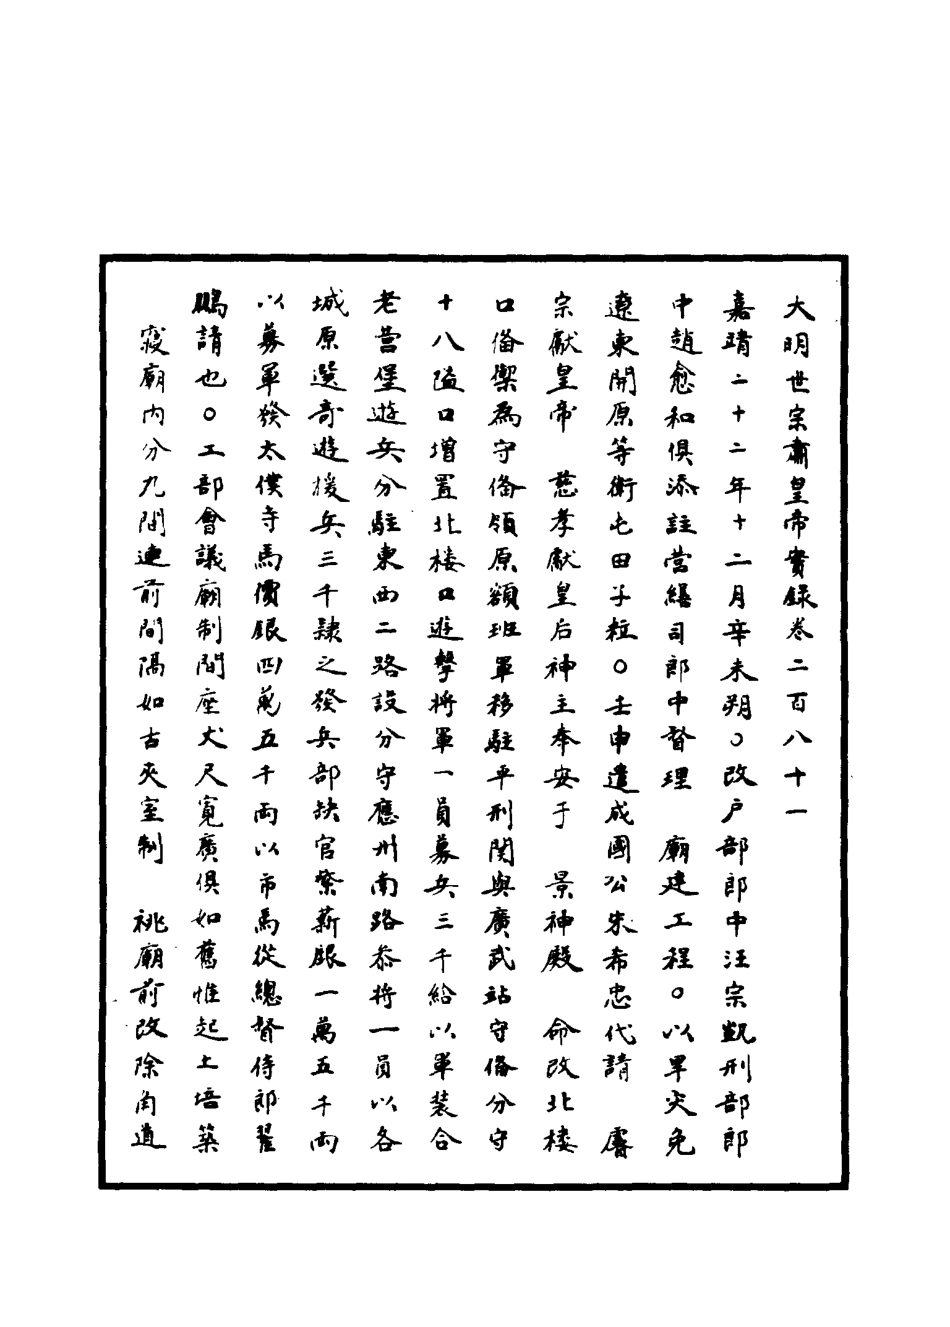 大明世宗肅皇帝實錄卷二百八十一
嘉靖二十二年十二月辛未朔○改户部郎中汪宗凱刑部郎
中趙愈和俱添註營繕司郎中督理　廟建工程○以旱災免
遼東開原等衛屯田子粒○壬申遣成國公朱希忠代請　睿
宗獻皇帝　慈孝獻皇后神主奉安于　景神殿　命改北樓
口俻禦為守俻領原額班軍移駐平刑関與廣武站守俻分守
十八隘口增置北樓口遊擊將軍一員募兵三千給以軍装合
老營堡遊兵分駐東西二路設分守應州南路叅将一員以各
城原選奇遊援兵三千隸之發兵部抉官柴薪銀一萬五千両
以募軍發太僕寺馬價銀四萬五千両以市馬從總督侍郎翟
鵬請也○工部會議廟制間座丈尺寬廣俱如舊惟起土培築
寢廟内分九間連前間隔如古夾室制　祧廟前改除甬道